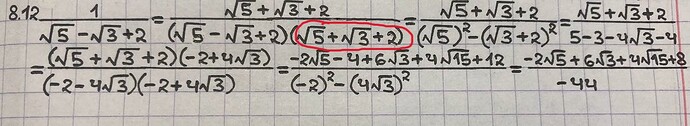 8.12. 1/(√5 - √3 + 2) = (√5 + √3 + 2)/((√5 - √3 + 2)(√5 + √3 + 2)) = (√5 + √3 + 2)/((√5)² - (√3 + 2)²) = (√5 + √3 + 2)/(5 - 3 - 4√3 - 4)
= ((√5 + √3 + 2)(-2 + 4√3))/((-2 - 4√3)(-2 + 4√3)) = (-2√5 - 4 + 6√3 + 4√15 + 12)/((-2)² - (4√3)²) = (-2√5 + 6√3 + 4√15 + 8)/(-44)